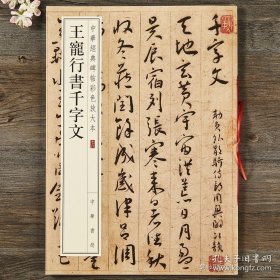 中華經典碑帖彩色放大本
王寵行書千字文
中華書局
千字文
勅員外散騎侍郎周興嗣次韻
天地玄黃宇宙洪荒日月盈
昃辰宿列張寒來暑往秋
收冬藏閏餘成歲律呂
孔夫子旧书网